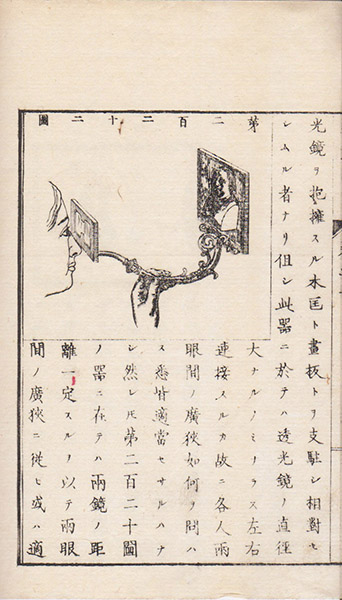 光鏡ヲ抱擁スル木匡ト畫板トヲ支駐シ相對セ
シムル者ナリ但シ此器ニ於テハ透光鏡ノ直徑
第二百二十二圖
大ナルノミナラス左右
連接スルカ故ニ各人兩
眼間ノ廣狹如何ヲ問ハ
ス悉皆適當セサルハナ
シ然レ𪜈第二百二十圖
ノ器ニ在テハ兩鏡ノ距
離一定スルヲ以テ兩眼
間ノ廣狹ニ從ヒ或ハ適